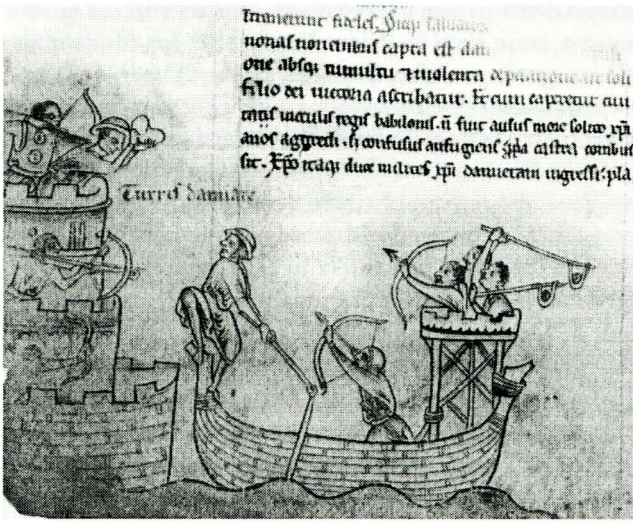 fideles
nonas nouembris capta est dam
one absq; tumultu ⁊ uiolenta ut soli
filio dei uictoria ascribatur. Et cum caperetur ciui
tatis oculis regis babilonis. ñ fuit ausus more solito xp̄i
anos aggredi. confusus aufugiens castra combus
sit. Xp̄o itaq; duce milites xp̄i damietam ingressi. pla
Turris damiate